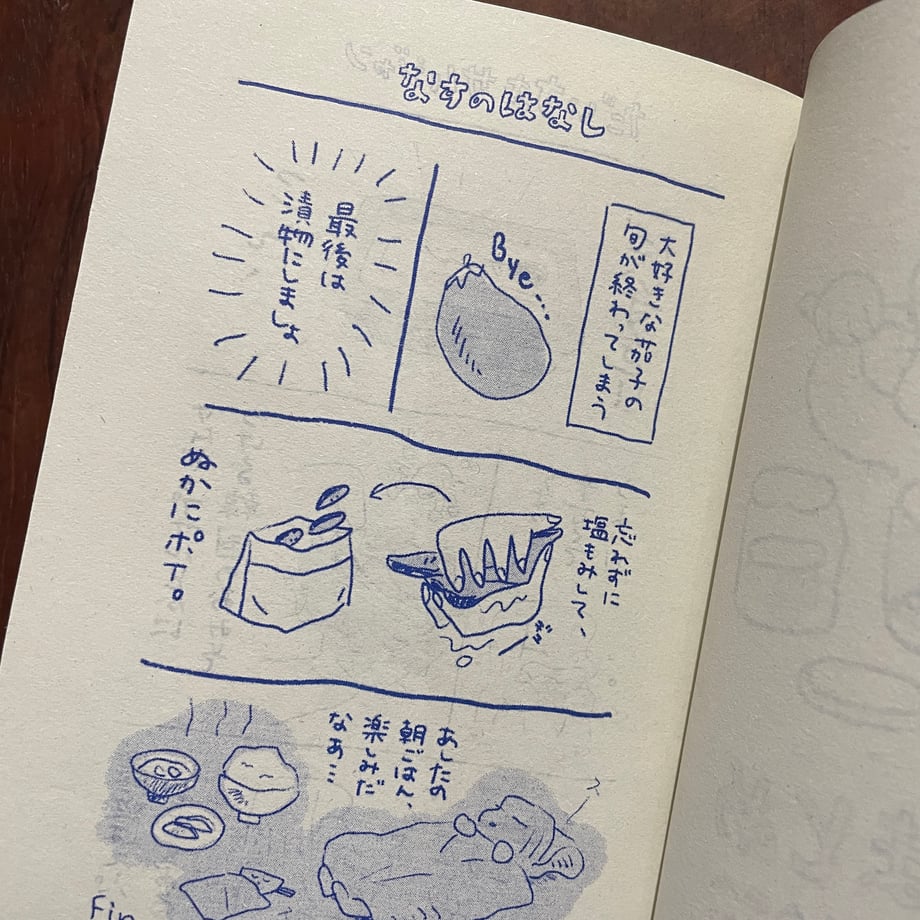 なすのはなし
大好きな茄子の
旬が終わってしまう
Bye...
最後は
漬物にしましょ
忘れずに
塩もみして、
ぬかにポイ。
あしたの
朝ごはん、
楽しみだ
なあ…
ス
Fin